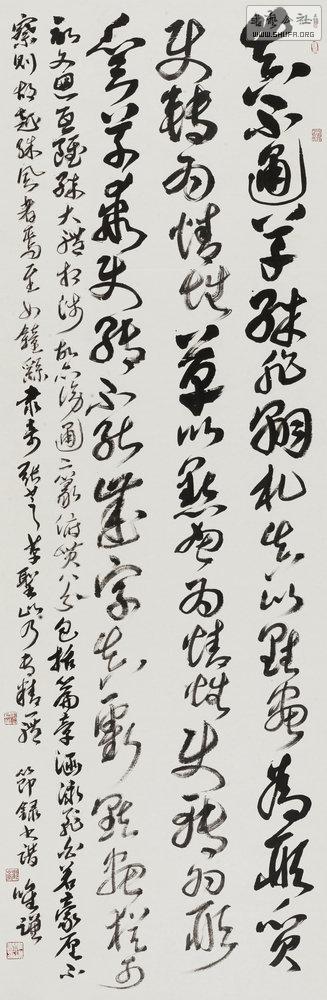 书艺公社
WWW.SHUFA.ORG
真不通草殊非翰札真以點畫為形質
使轉為情性草以點畫為情性使轉為形
質草乖使轉不能成字真虧點畫猶可
記文迴互雖殊大體相涉故亦傍通二篆俯貫八分包括篇章涵泳飛白若豪釐不
察則胡越殊風者焉至如鍾繇隸奇張芝草聖此乃專精一體 節錄書譜 唯謙